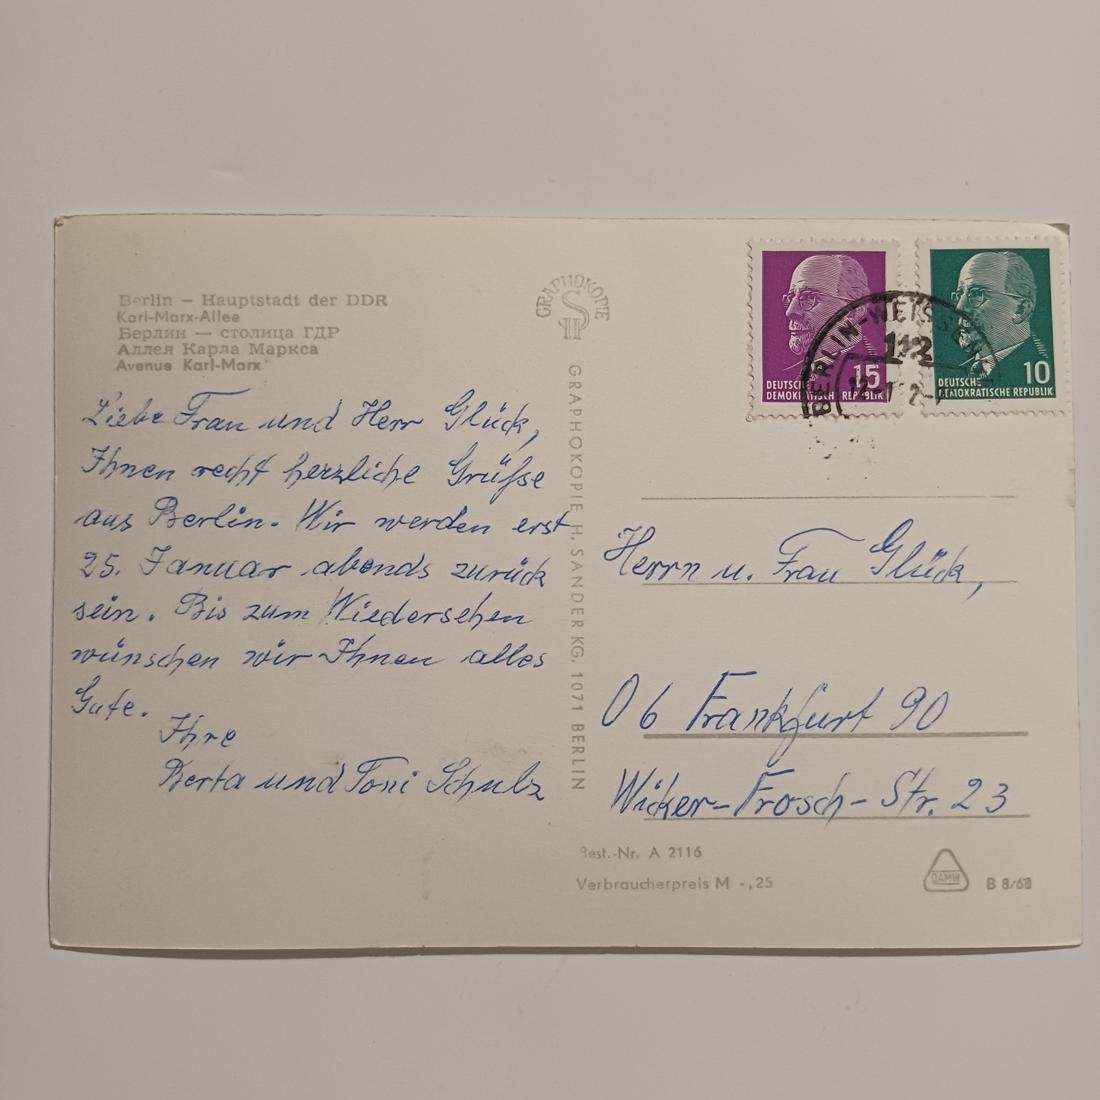 Berlin – Hauptstadt der DDR
Karl-Marx-Allee
Берлин — столица ГДР
Аллея Карла Маркса
Avenue Karl-Marx
Liebe Frau und Herr Glück,
Ihnen recht herzliche Grüße
aus Berlin. Wir werden erst
25. Januar abends zurück
sein. Bis zum Wiedersehen
wünschen wir Ihnen alles
Gute.
Ihre
Berta und Toni Schulz
GRAPHOKOPIE
GRAPHOKOPIE, H. SANDER KG, 1071 BERLIN
15
DEUTSCHE
DEMOKRATISCHE REPUBLIK
10
DEUTSCHE
DEMOKRATISCHE REPUBLIK
BERLIN-WEISSENSEE
112
Herrn u. Frau Glück,
06 Frankfurt 90
Wicker-Frosch-Str. 23
Best.-Nr. A 2116
Verbraucherpreis M -,25
DAMW
B 8/68